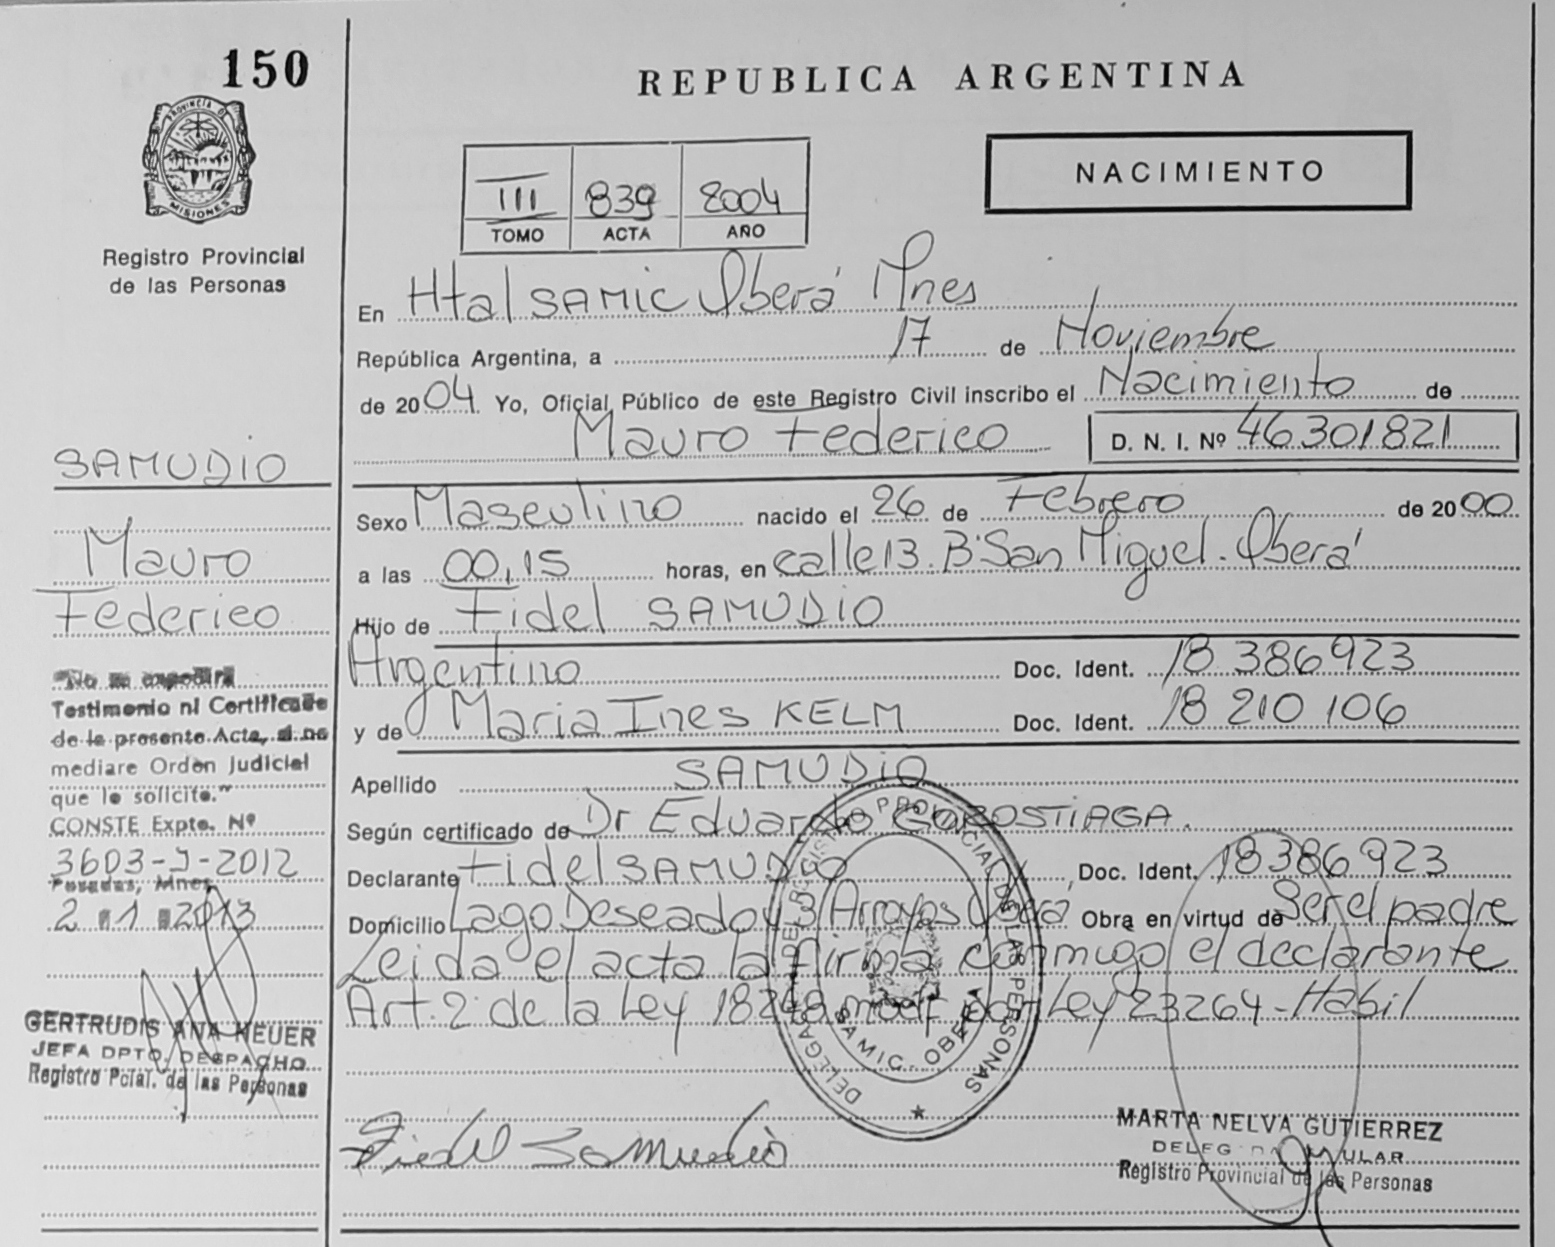 150
REPUBLICA ARGENTINA
PROVINCIA DE
MISIONES
NACIMIENTO
III 839 2004
TOMO ACTA AÑO
Registro Provincial
de las Personas
En Htal SAMIC Oberá Mnes
República Argentina, a 17 de Noviembre
de 2004. Yo, Oficial Público de este Registro Civil inscribo el Nacimiento de
Mauro Federico D. N. I. Nº 46301821
SAMUDIO
Mauro
Federico
Sexo Masculino nacido el 26 de Febrero de 2000
a las 00,15 horas, en calle 13. Bº San Miguel - Oberá
Hijo de Fidel SAMUDIO
Argentino Doc. Ident. 18 386 923
y de Maria Ines KELM Doc. Ident. 18 210 106
Apellido SAMUDIO
Según certificado de Dr Eduardo GOROSTIAGA.
Declarante Fidel SAMUDIO, Doc. Ident. 18386923
Domicilio Lago Deseado y 3 Arroyos Oberá Obra en virtud de Ser el padre
Leida el acta la firma conmigo el declarante
Art. 2º de la Ley 18248 modf por Ley 23264 - Habil
"No se expedirá
Testimonio ni Certificado
de la presente Acta, si no
mediare Orden Judicial
que lo solicite."
CONSTE Expte. Nº
3603-J-2012
Posadas, Mnes
2 1 2013
GERTRUDIS ANA NEUER
JEFA DPTO. DESPACHO
Registro Pcial. de las Personas
DELEGA DEL REGISTRO PROVINCIAL DE LAS PERSONAS
SAMIC - OBERA
Fidel Samudio
MARTA NELVA GUTIERREZ
Registro Provincial de las Personas